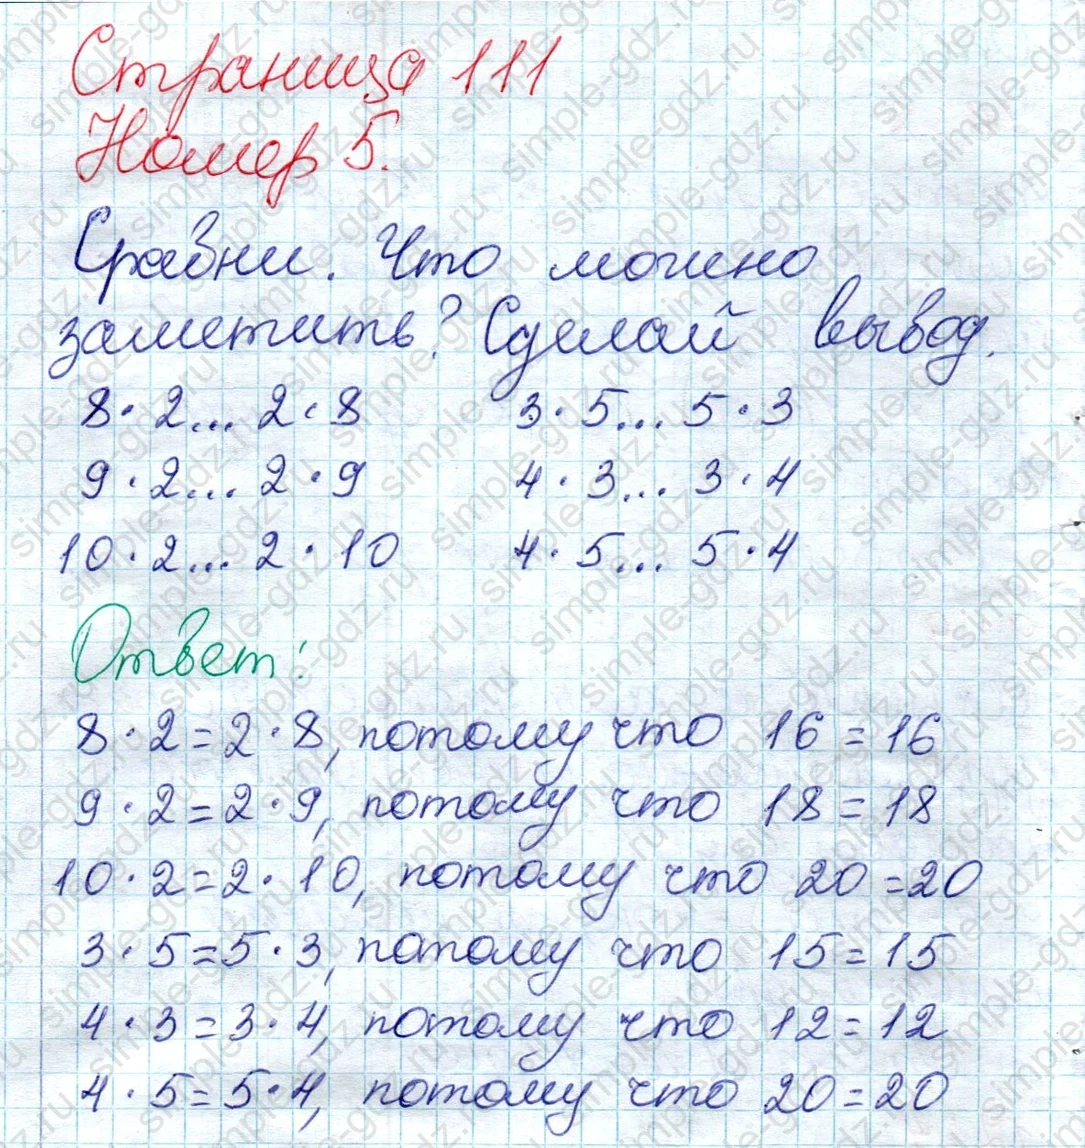 Страница 111
Номер 5.
Сравни. Что можно
заметить? Сделай вывод.
8 · 2 ... 2 · 8 3 · 5 ... 5 · 3
9 · 2 ... 2 · 9 4 · 3 ... 3 · 4
10 · 2 ... 2 · 10 4 · 5 ... 5 · 4
Ответ:
8 · 2 = 2 · 8, потому что 16 = 16
9 · 2 = 2 · 9, потому что 18 = 18
10 · 2 = 2 · 10, потому что 20 = 20
3 · 5 = 5 · 3, потому что 15 = 15
4 · 3 = 3 · 4, потому что 12 = 12
4 · 5 = 5 · 4, потому что 20 = 20
simple-gdz.ru